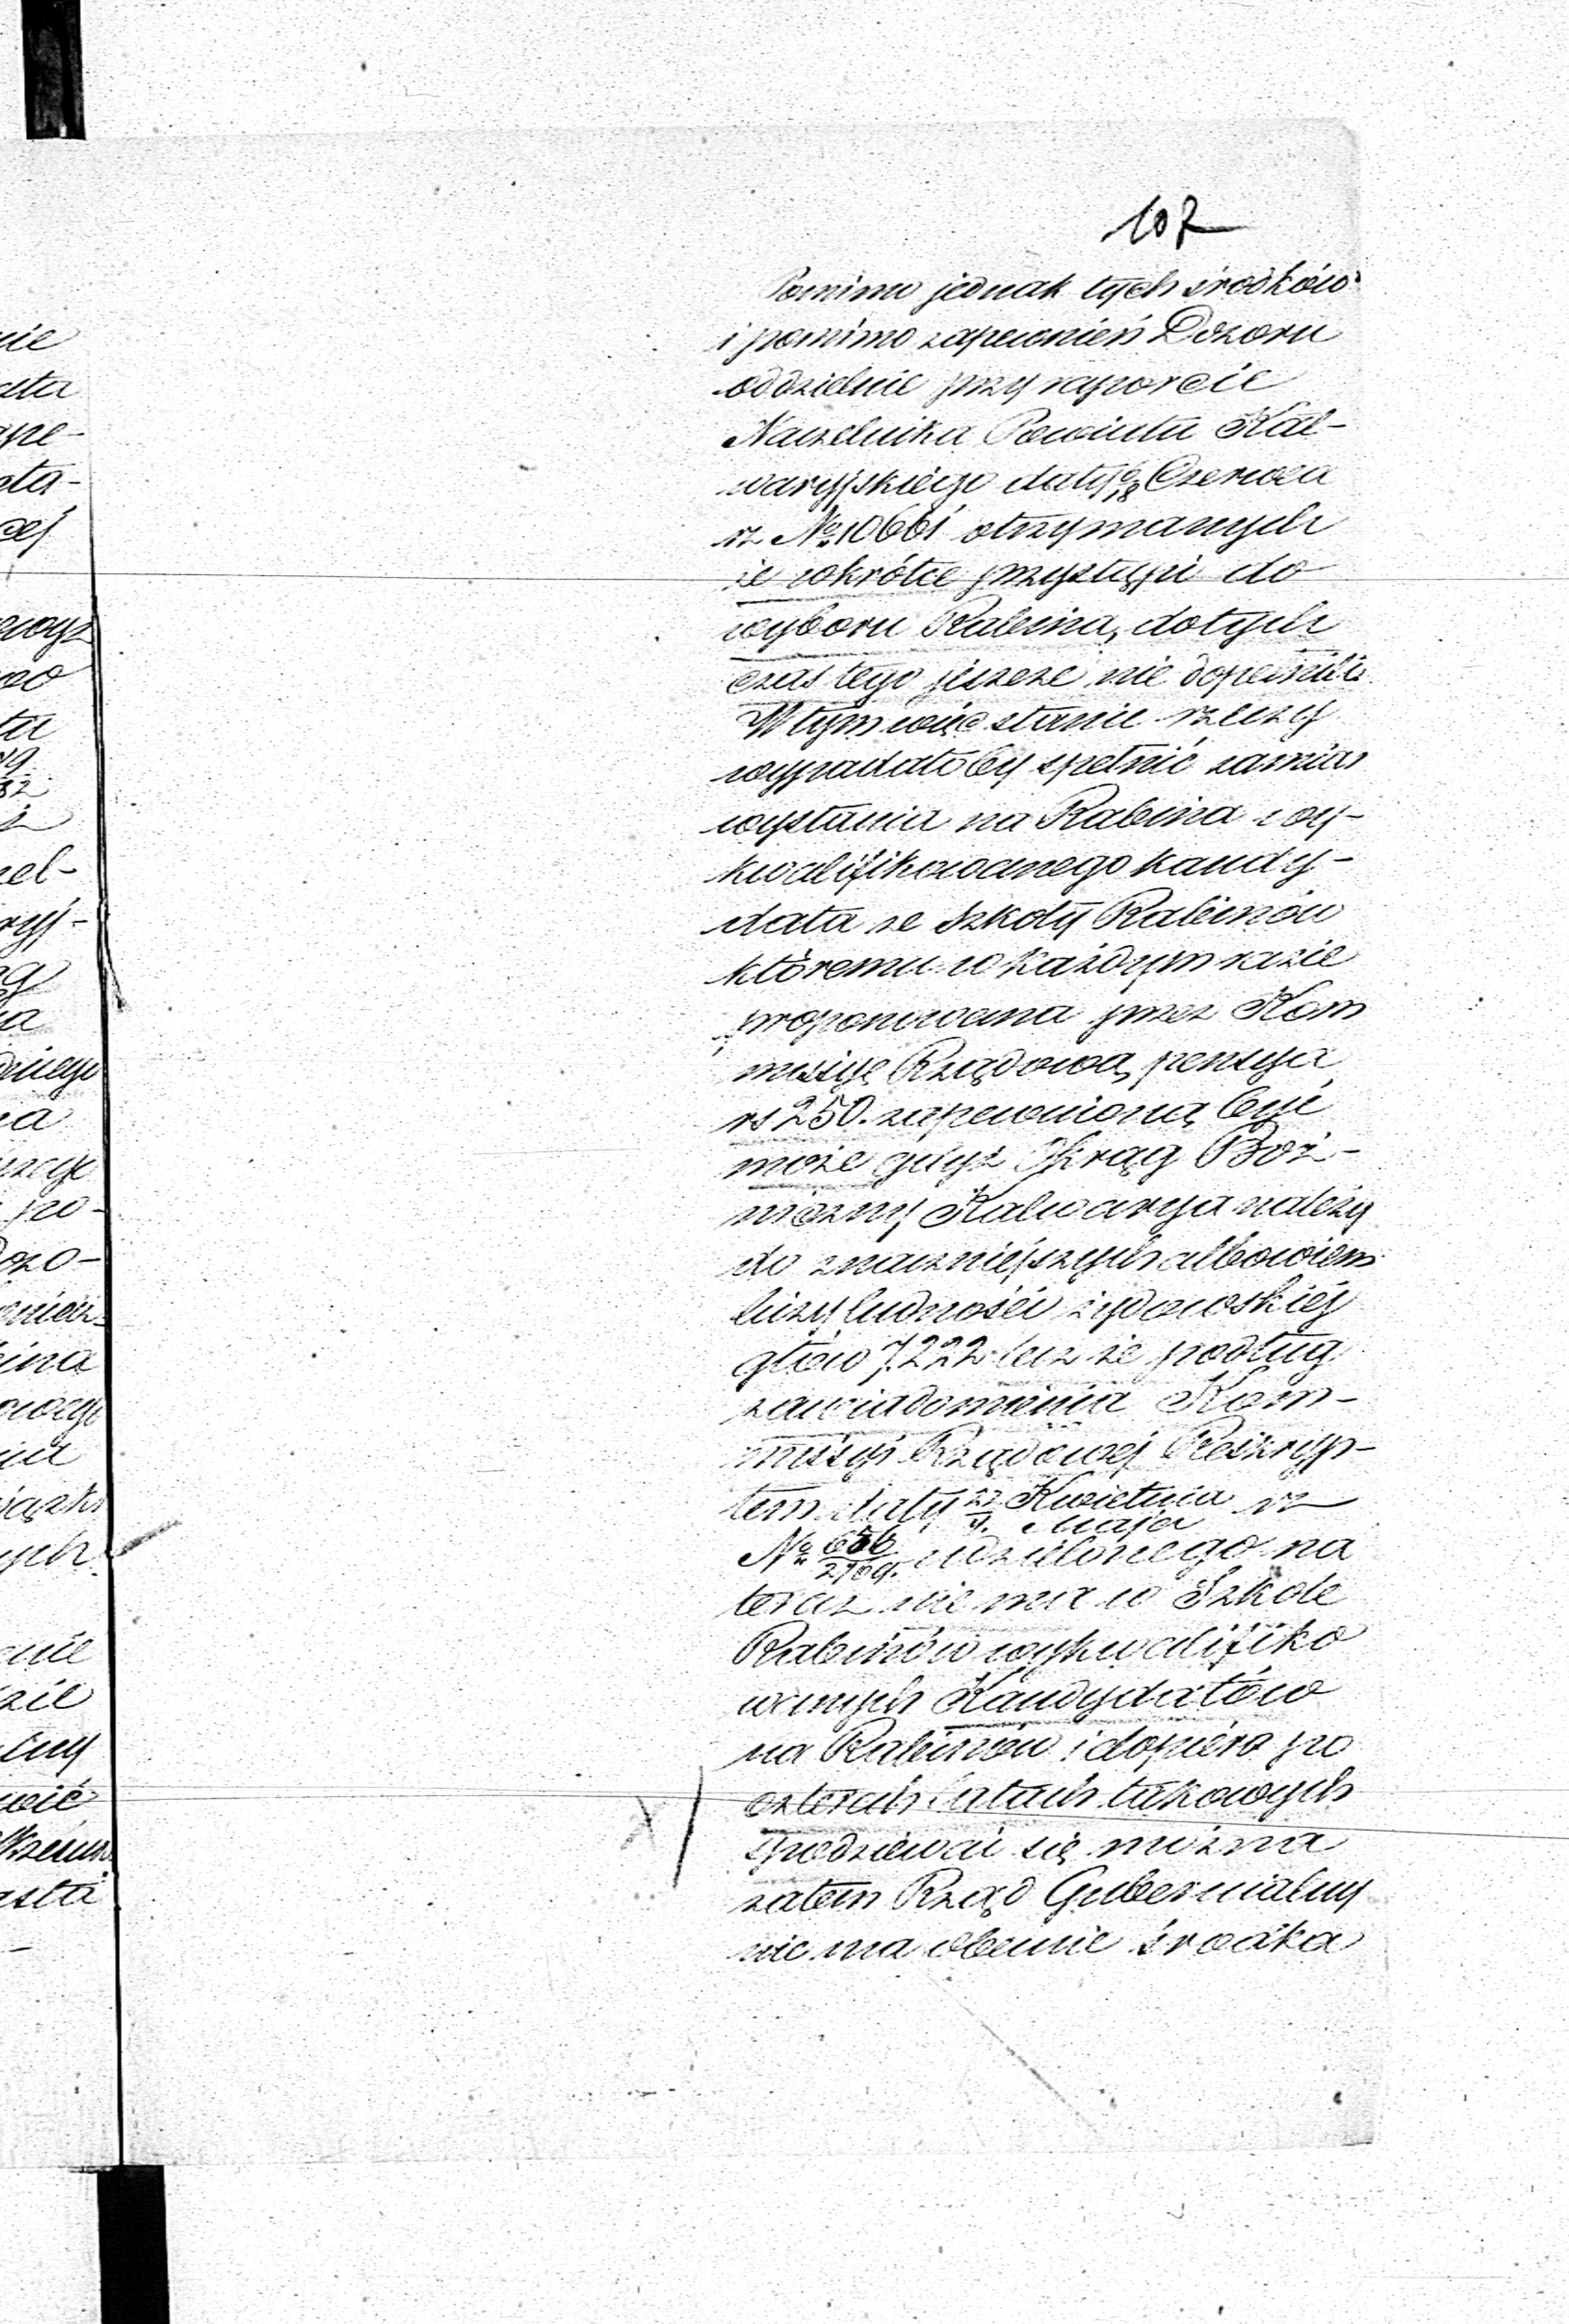 107
Pomimo jednak tych środków
i pomimo zapewnień Dozoru
oddzielnie przy raporcie
Naczelnika Powiatu Kal-
waryjskiego daty 6/18 Czerwca
rz № 10661 otrzymanych
że wkrótce przystąpi do
wyboru Rabina, dotych
czas tego jeszcze nie dopełnili
W tym więc stanie rzeczy
wypadało by spełnić zamiar
wysłania na Rabina wy-
kwalifikowanego kandy-
data ze Szkoły Rabinów
któremu w każdym razie
proponowana przez Kom
missyę Rządową pensya
rs 250. zapewnioną być
może gdyż Okręg Boż-
niczny Kalwarya należy
do znaczniejszych albowiem
liczy ludności żydowskiéj
głów 7222 lecz że podług
zawiadomienia Kom-
missyi Rządowéj Reskryp-
tem daty 22 Kwietnia / 4. Maja rz
№ 656/2909. udzielonego na
teraz nie ma w Szkole
Rabinów wykwalifiko
wanych Kandydatów
na Rabinów i dopiero po
czterech latach takowych
spodziewać się można
zatem Rząd Gubernialny
nie ma obecnie środka